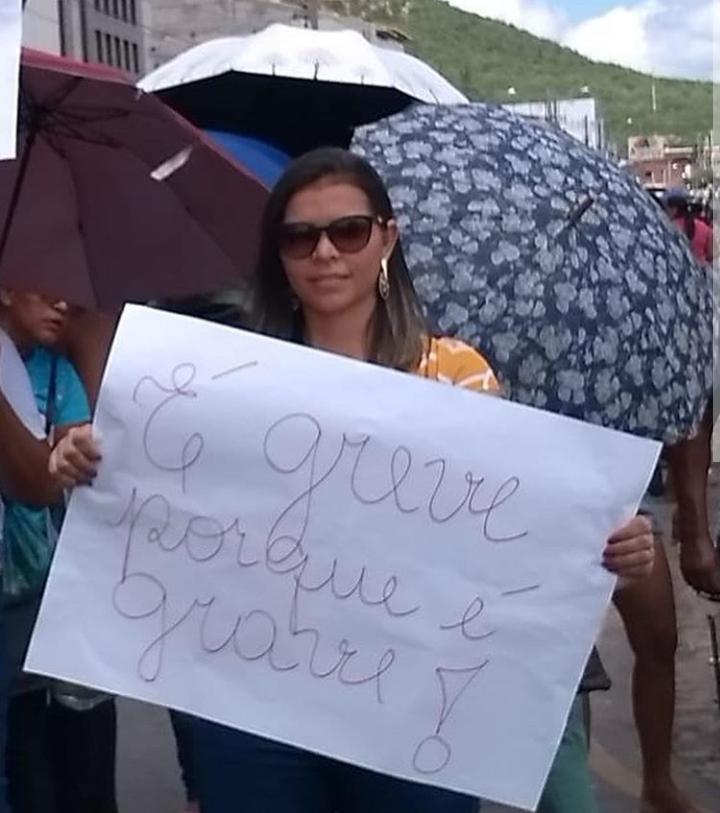 É greve
porque é
grave!